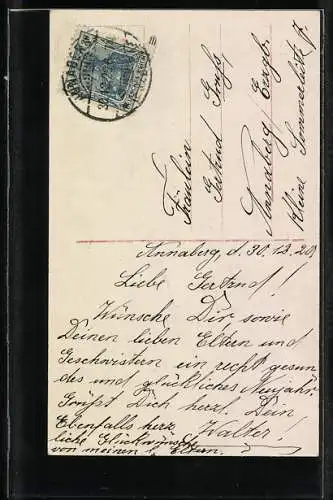 Fräulein
Gertrud Groß
Annaberg Erzgb.
Kleine Sommerleite 7.
Annaberg, d. 30.12.20.
Liebe Gertrud!
Wünsche Dir sowie
Deinen lieben Eltern und
Geschwistern ein recht gesun
des und glückliches Neujahr.
Grüßt Dich herzl. Dein
Ebenfalls herz Walter!
liche Glückwünsche
von meinen l. Eltern.